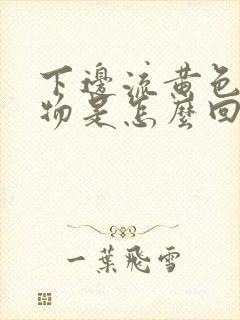 下邊流黃色
物是怎麼回
一葉飛雪